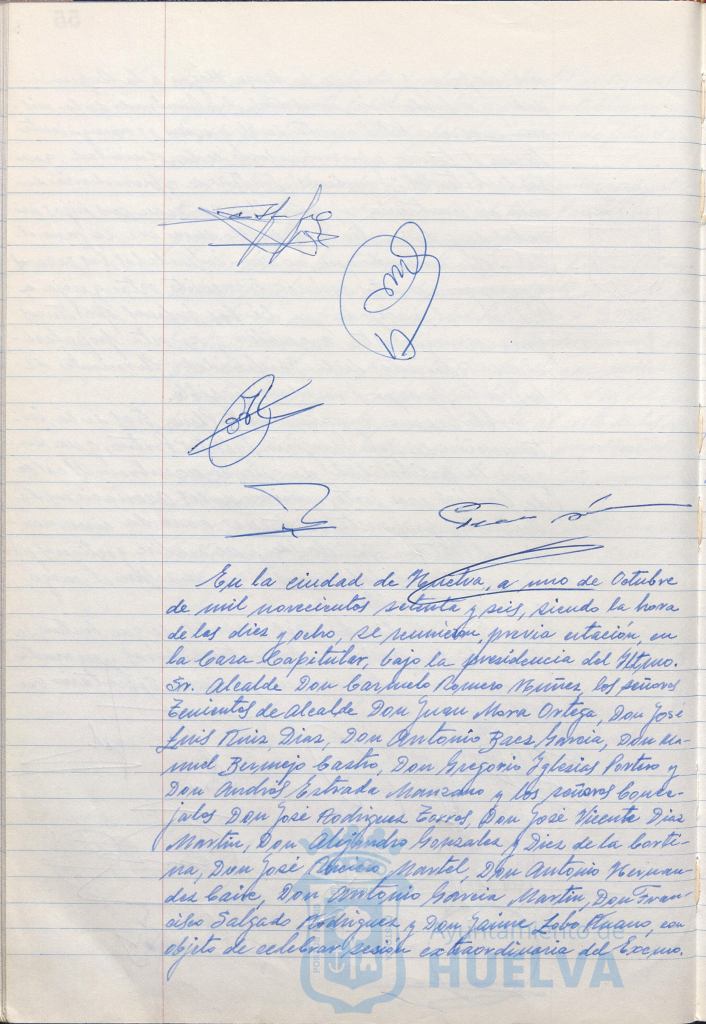 En la ciudad de Huelva, a uno de Octubre
de mil novecientos setenta y seis, siendo la hora
de las diez y ocho, se reunieron, previa citación, en
la Casa Capitular, bajo la presidencia del Iltmo.
Sr. Alcalde Don Carmelo Romero Núñez, los señores
Tenientes de Alcalde Don Juan Mora Ortega, Don José
Luis Ruiz Diaz, Don Antonio Baez Garcia, Don Ma-
nuel Bermejo Castro, Don Gregorio Yglesias Portero y
Don Andrés Estrada Manzano y los señores Conce-
jales Don José Rodriguez Torres, Don José Vicente Diaz
Martin, Don Alejandro Gonzalez y Diez de la Corti-
na, Don José Martel, Don Antonio Hernan-
dez Don Antonio Garcia Martin, Don Fran-
cisco Salgado Rodriguez y Don Jaime Lobo con
objeto de celebrar sesión extraordinaria del Excmo.
Ayuntamiento
HUELVA